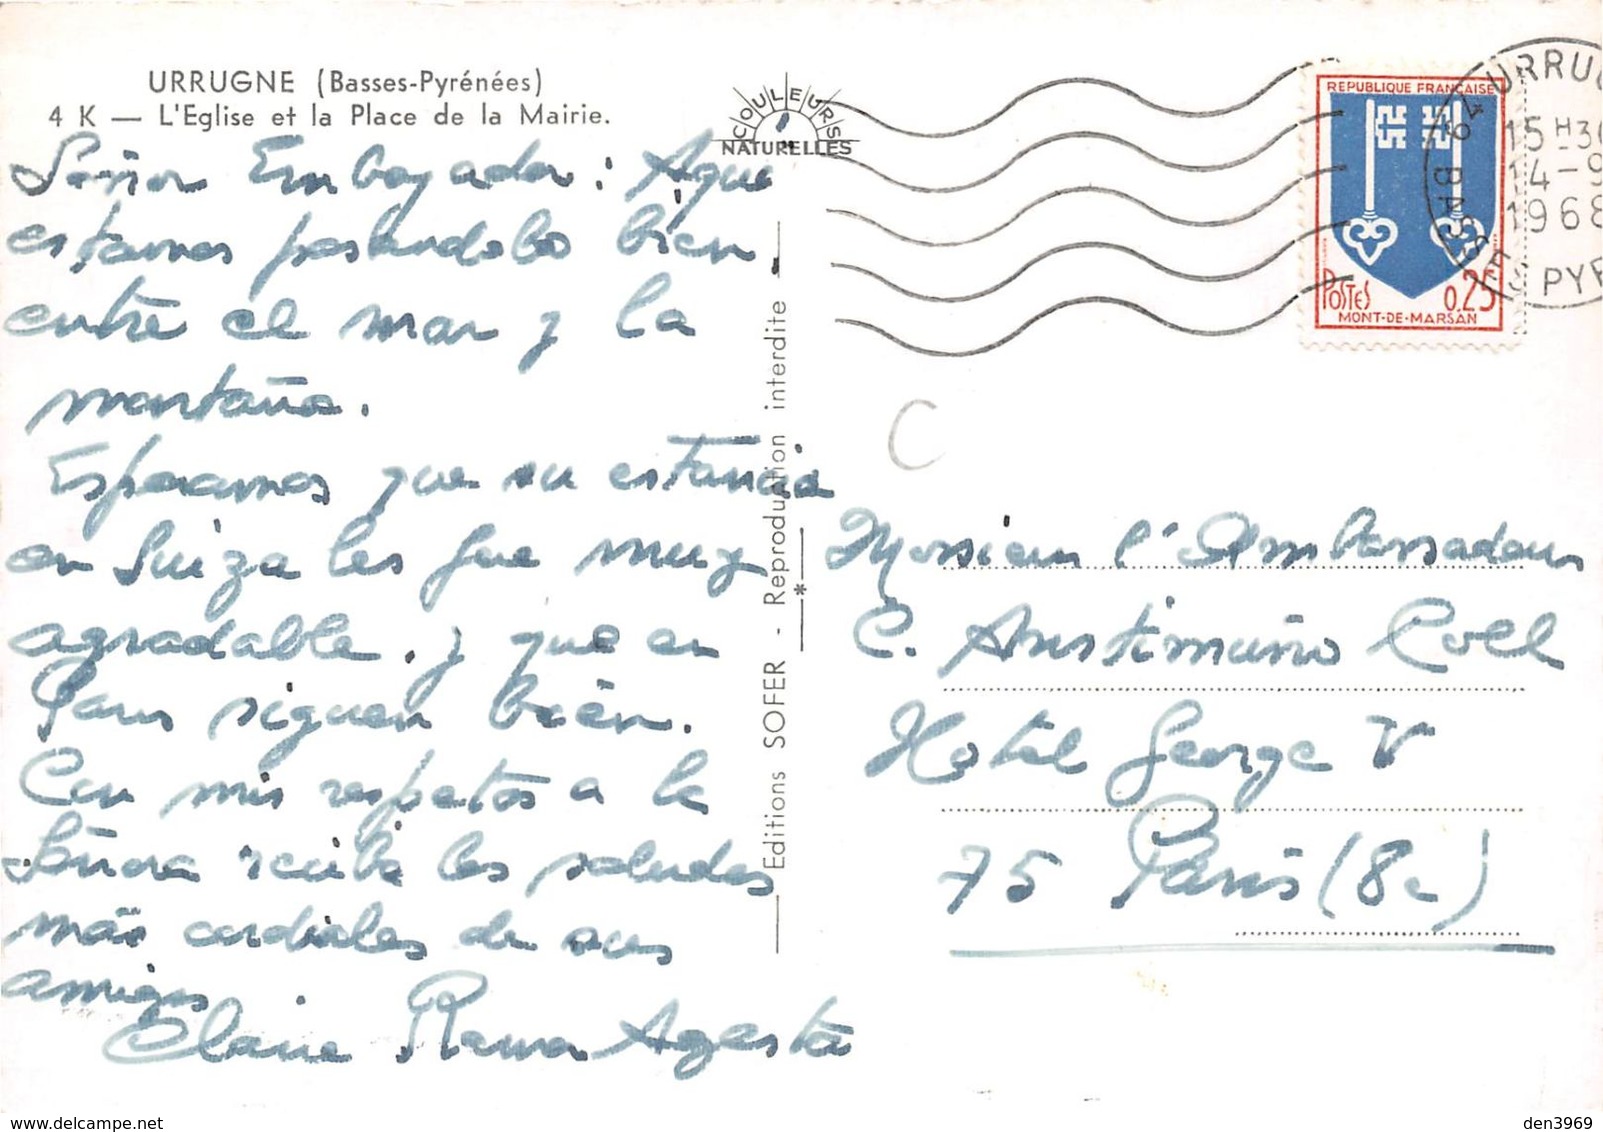 URRUGNE (Basses-Pyrénées)
4 K — L'Eglise et la Place de la Mairie.
Señor Embajador: Aqui
estamos pasandolo bien
entre el mar y la
montaña.
Esperamos que su estancia
en Suiza les fue muy
agradable, y que en
Paris siguen bien.
Con mis respetos a la
Señora reciba los saludos
más cordiales de sus
amigos
Claire
COULEURS
NATURELLES
Editions SOFER - Reproduction interdite
REPUBLIQUE FRANÇAISE
POSTES 0,25
MONT-DE-MARSAN
URRUG
15 H 30
14-9
1968
BASSES PYR
C
Monsieur l'Ambassadeur
C.
Hotel George V
75 Paris (8e)
delcampe.net
den3969